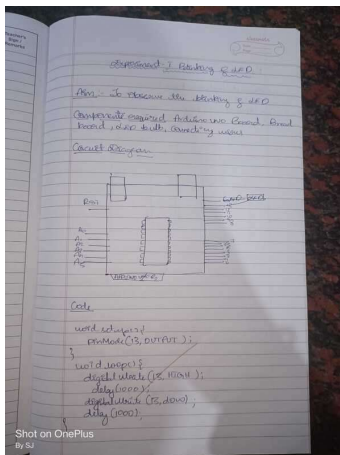 Teacher's
Sign /
Remarks
Experiment 1 Blinking of LED
Aim :- To observe the blinking of LED
Components required Arduino UNO Board, Bread
board, LED bulb, connecting wires
Circuit Diagram
Code
void setup(){
pinMode(13, OUTPUT);
}
void loop(){
digitalWrite(13, HIGH);
delay(1000);
digitalWrite(13, LOW);
delay(1000);
}
Shot on OnePlus
By SJ